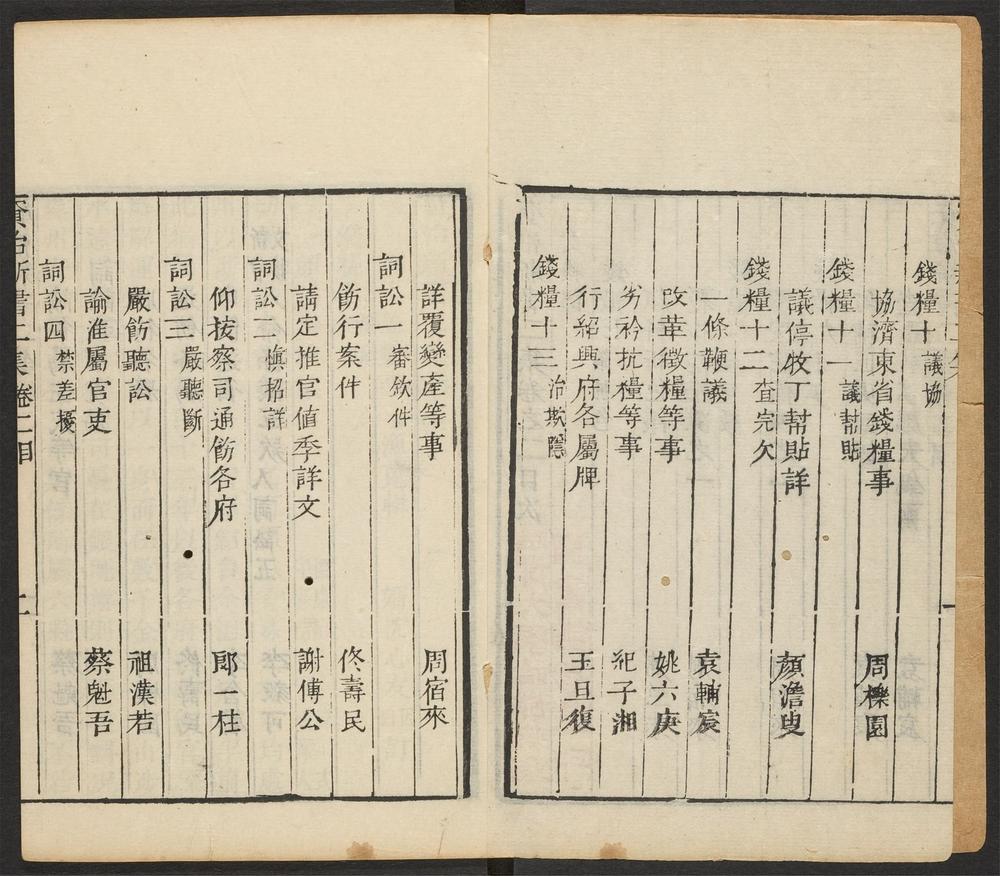 錢糧十 議協
協濟東省錢糧事 周櫟園
錢糧十一 議幫貼
議停牧丁幫貼詳 顏澹叟
錢糧十二 查完欠
一條鞭議 袁輔宸
改革徵糧等事 姚六康
劣衿抗糧等事 紀子湘
行紹興府各屬牌 王旦復
錢糧十三 治欺隱
詳覆變產等事 周宿來
詞訟一 審欽件
飭行案件 佟壽民
請定推官值季詳文 謝傅公
詞訟二 慎招詳
仰按察司通飭各府 郎一柱
詞訟三 嚴聽斷
嚴飭聽訟 祖漢若
諭准屬官吏 蔡魁吾
詞訟四 禁差擾
資治新書二集卷二目 二